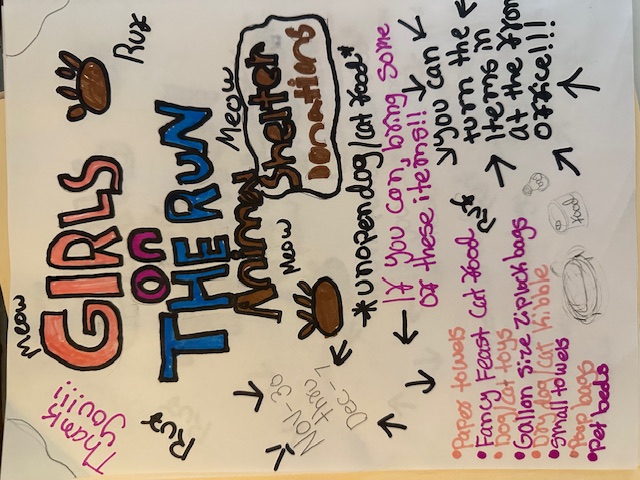 Thank
you!!!
Meow
GIRLS
on
THE RUN
Meow
Animal
Shelter
Donations
Meow
Nov-30
thru
Dec-7
*unopen dog/cat food*
If you can, bring some
of these items!!
you can
turn the
items in
at the front
office!!!
•Paper towels
•Fancy Feast Cat food
•Dog/cat toys
•Gallon size Ziplock bags
•Dry dog/cat kibble
•Small towels
•Poop bags
•Pet beds
food